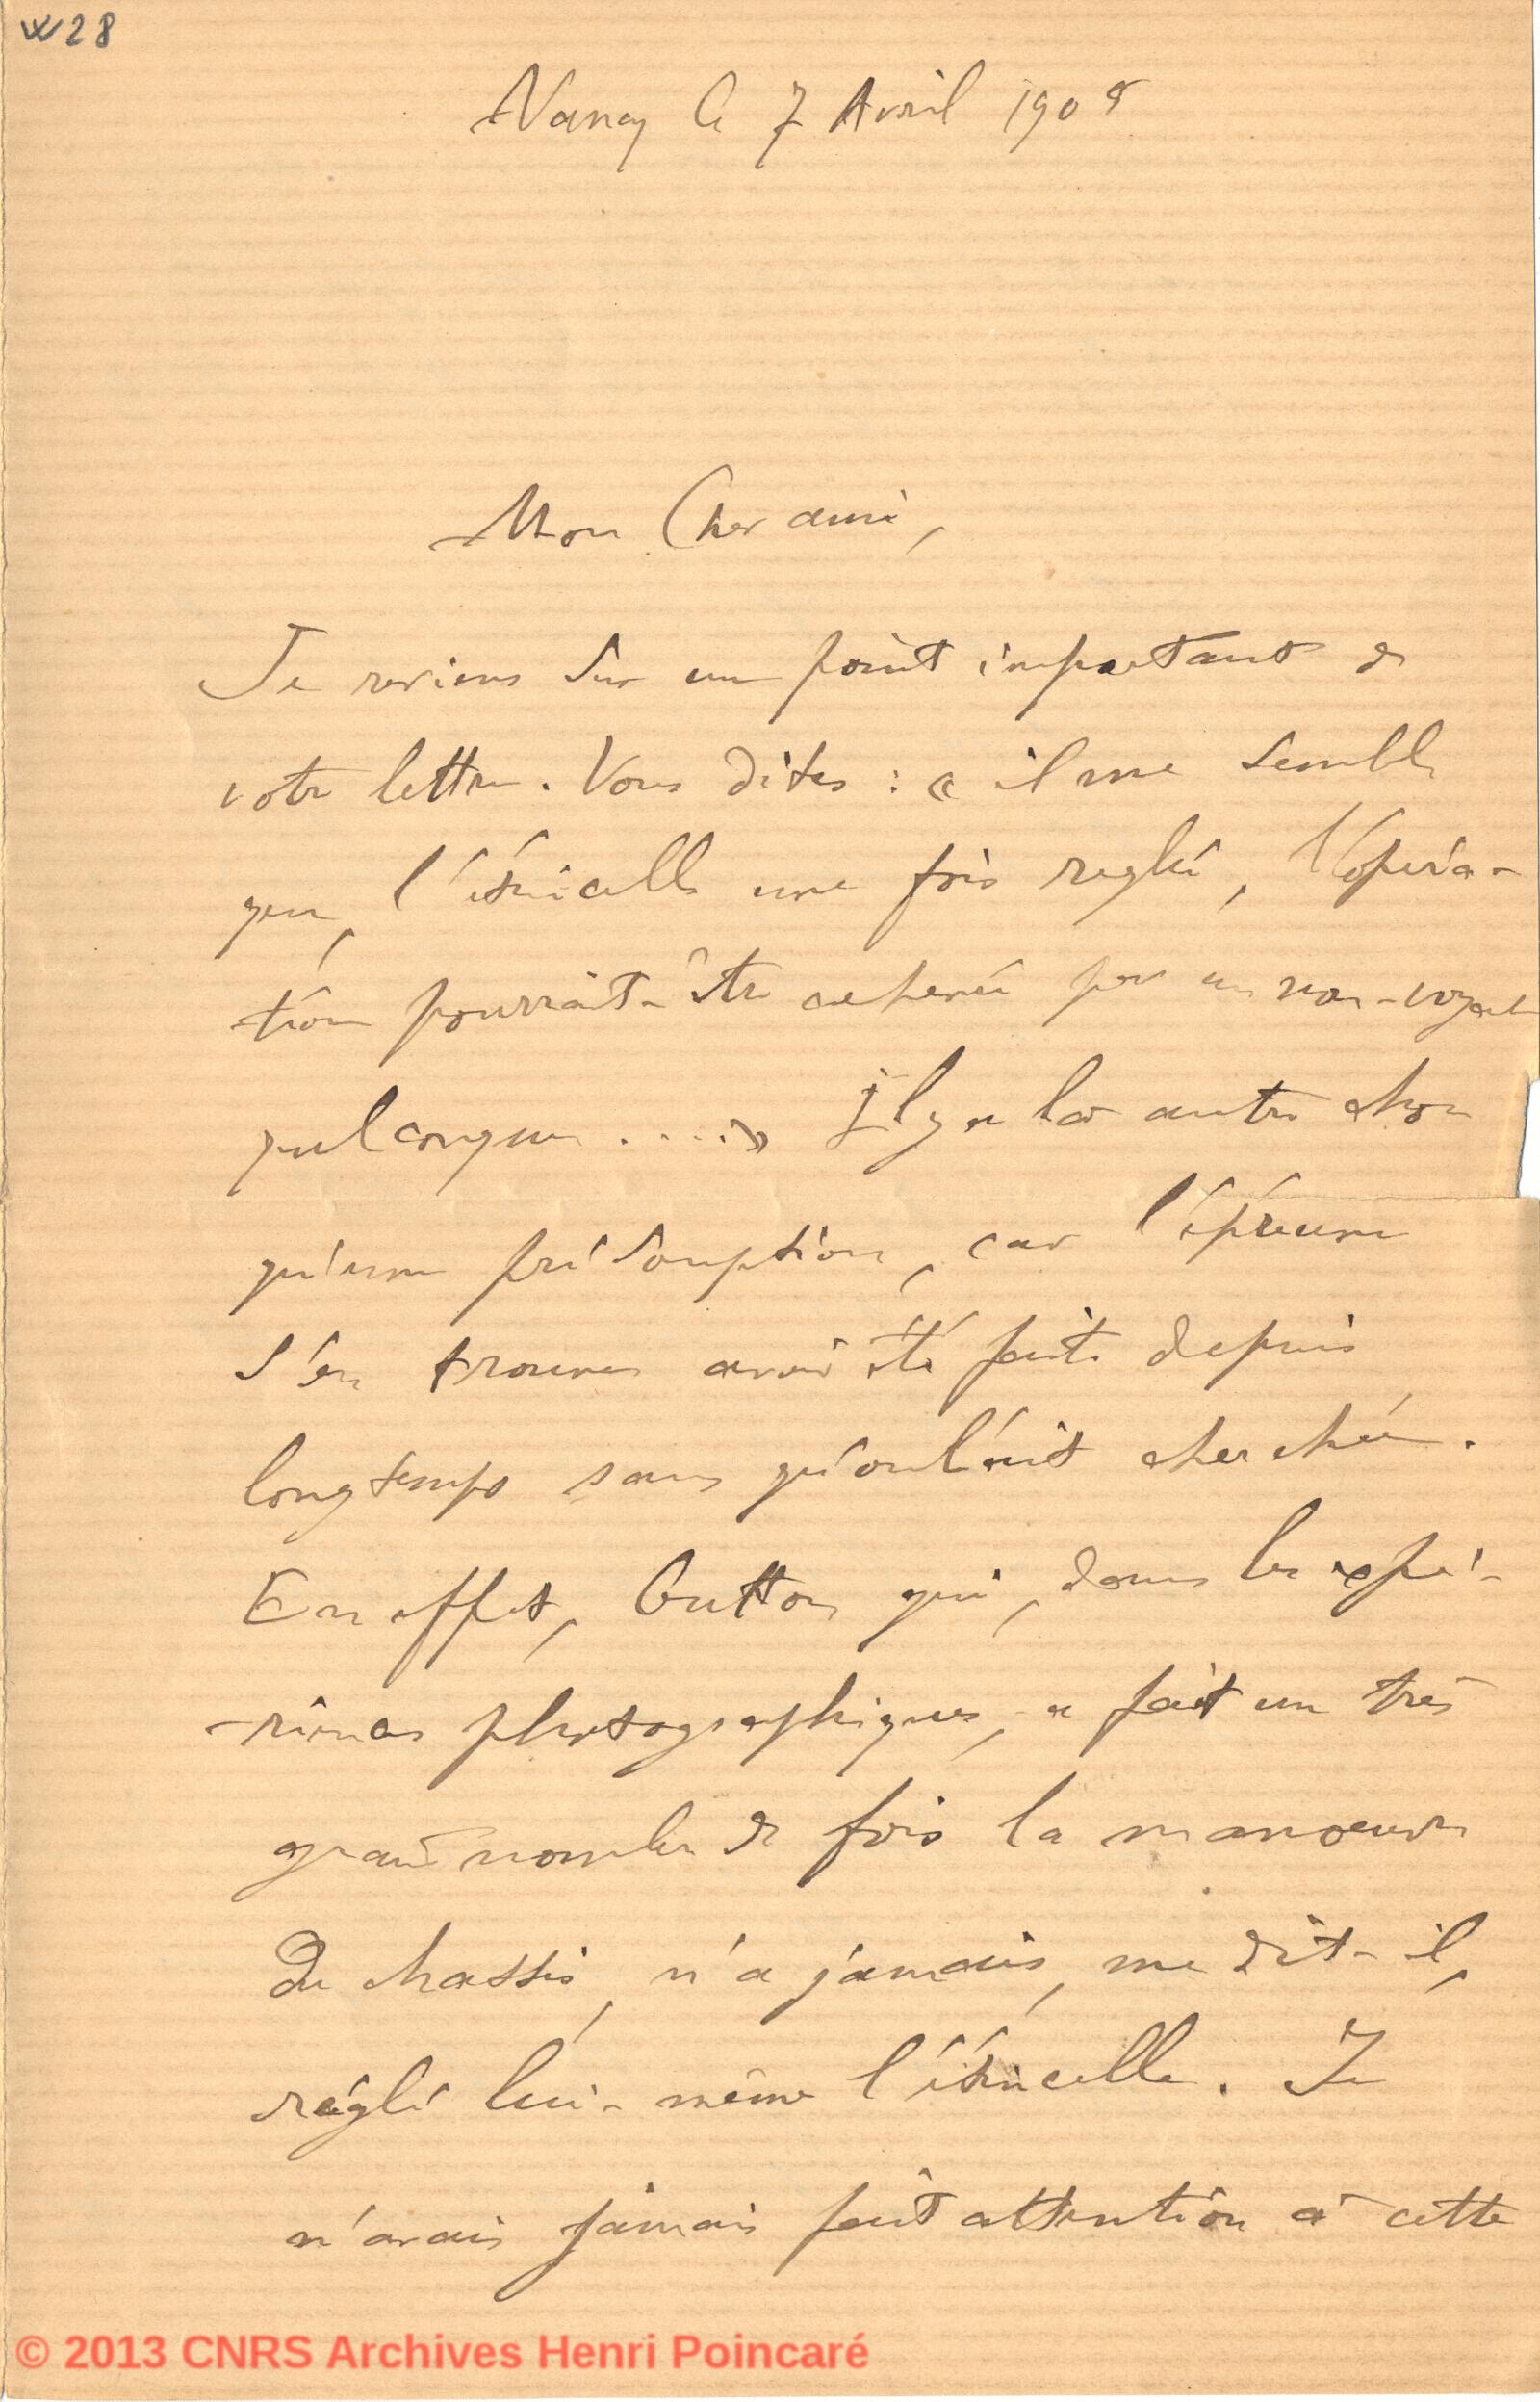 W28
Nancy le 7 Avril 1905
Mon Cher ami,
Je reviens sur un point important de
votre lettre. Vous dites : « il me semble
que, l'étincelle une fois reglée, l'opéra-
tion pourrait-être achevée par un non-voyant
quelconque .....» Il y a là autre chose
qu'une présomption, car l'épreuve
s'en trouve avoir été faite depuis
longtemps sans qu'on l'eût cherchée.
En effet, Gutton qui, dans les expé-
-riences photographiques, a fait un très
grand nombre de fois la manoeuvre
du chassis, n'a jamais, me dit-il,
réglé lui-même l'étincelle. Je
n'avais jamais fait attention à cette
© 2013 CNRS Archives Henri Poincaré